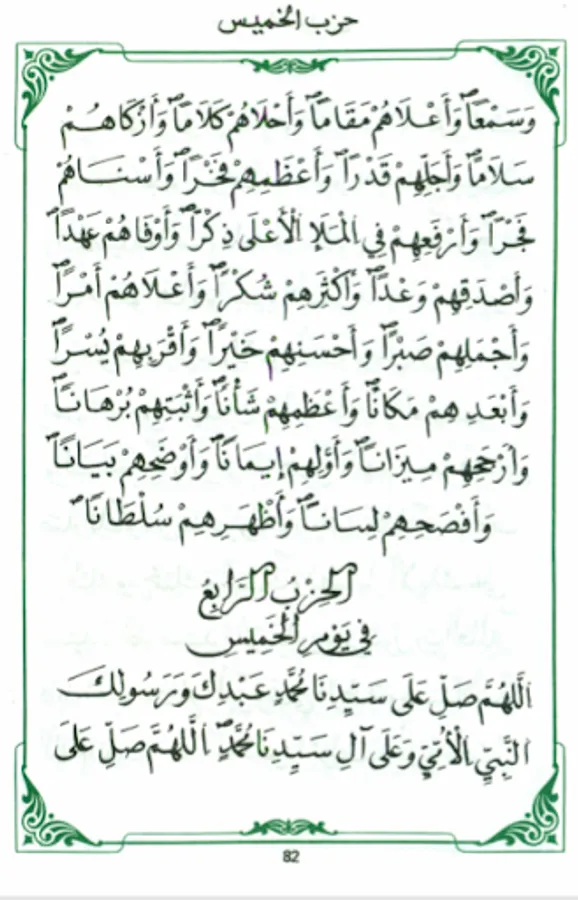 حزب الخميس
وَسَمْعًا وَأَعْلَاهُمْ مَقَامًا وَأَحْلَاهُمْ كَلَامًا وَأَزْكَاهُمْ
سَلَامًا وَأَجَلِّهِمْ قَدْرًا وَأَعْظَمِهِمْ فَخْرًا وَأَسْنَاهُمْ
فَجْرًا وَأَرْفَعِهِمْ فِي الْمَلَإِ الْأَعْلَى ذِكْرًا وَأَوْفَاهُمْ عَهْدًا
وَأَصْدَقِهِمْ وَعْدًا وَأَكْثَرِهِمْ شُكْرًا وَأَعْلَاهُمْ أَمْرًا
وَأَجْمَلِهِمْ صَبْرًا وَأَحْسَنِهِمْ خَيْرًا وَأَقْرَبِهِمْ يُسْرًا
وَأَبْعَدِهِمْ مَكَانًا وَأَعْظَمِهِمْ شَأْنًا وَأَثْبَتِهِمْ بُرْهَانًا
وَأَرْجَحِهِمْ مِيزَانًا وَأَوَّلِهِمْ إِيمَانًا وَأَوْضَحِهِمْ بَيَانًا
وَأَفْصَحِهِمْ لِسَانًا وَأَظْهَرِهِمْ سُلْطَانًا
الْحِزْبُ الرَّابِعُ
فِي يَوْمِ الْخَمِيسِ
اللَّهُمَّ صَلِّ عَلَى سَيِّدِنَا مُحَمَّدٍ عَبْدِكَ وَرَسُولِكَ
النَّبِيِّ الْأُمِّيِّ وَعَلَى آلِ سَيِّدِنَا مُحَمَّدٍ اللَّهُمَّ صَلِّ عَلَى
82